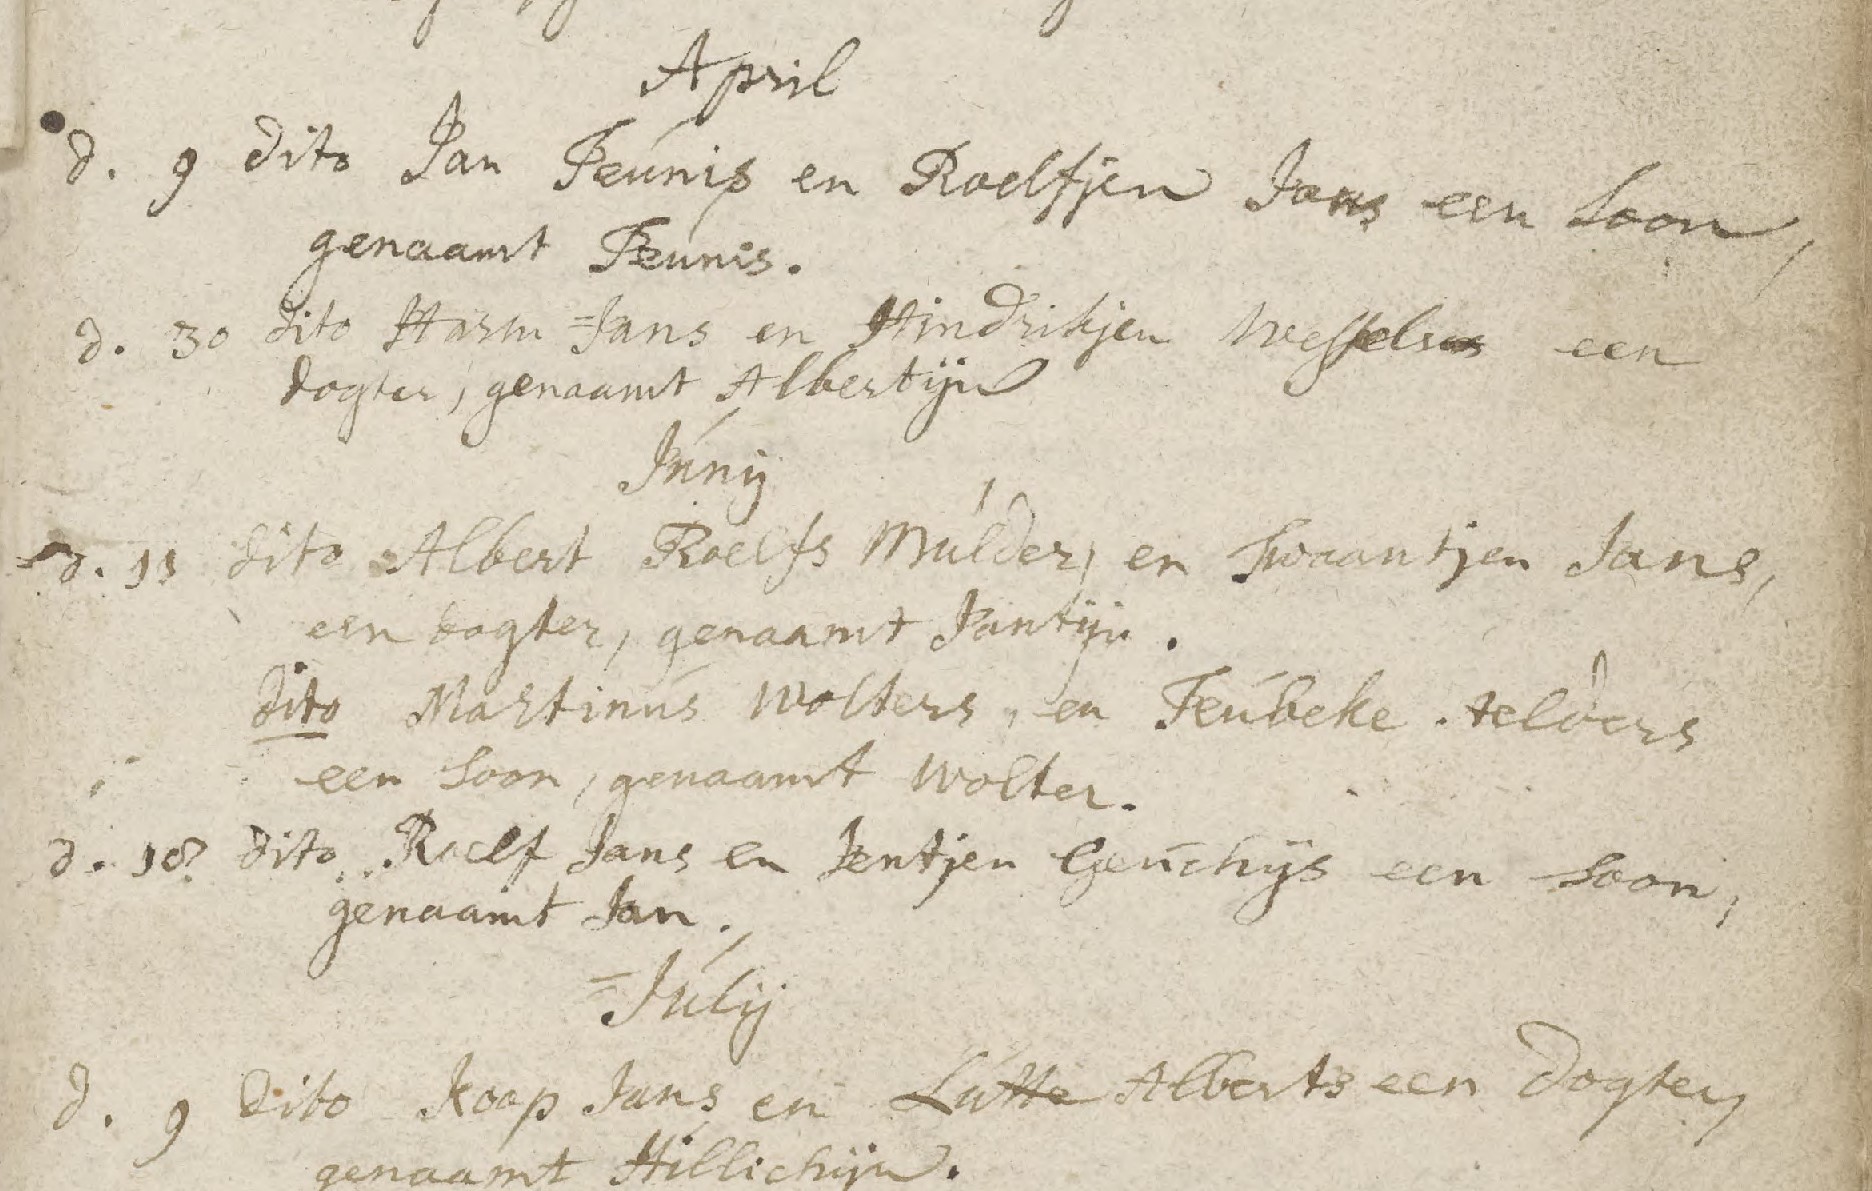 April
d. 9 dito Jan Teúnis en Roelfjen Jans een Soon,
genaamt Teunis.
d. 30 dito Harm Jans en Hindrikjen Wessels een
dogter, genaamt Albertijn
Júnij
d. 11 dito Albert Roelfs Múlder, en Swaantjen Jans,
een dogter, genaamt Jantijn.
dito Martinús Wolters, en Teúbeke Aelders
een Soon, genaamt Wolter.
d. 18 dito Roelf Jans en Jentjen Geúchijs een Soon,
genaamt Jan.
Júlij
d. 9 dito Koop Jans en Lútte Alberts een Dogter,
genaamt Hillichijn.